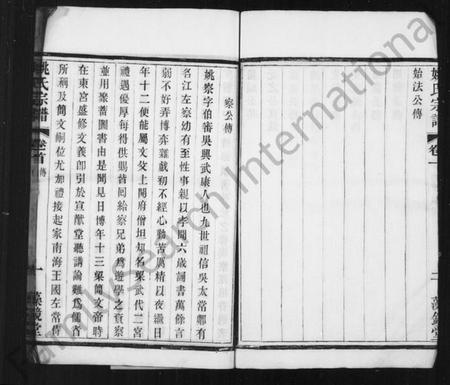 姚氏宗譜
卷一
二
藻鏡堂
始法公傳
察公傳
姚察字伯審吳興武康人也九世祖信吳太常卿有
名江左察幼有至性事親以孝聞六歲誦書萬餘言
弱不好弄博弈雜戲初不經心勤苦厲精以夜繼日
年十二便能屬文父上開府僧坦知名梁武代二宮
禮遇優厚每得供賜皆回給察兄弟為遊學之資察
並用聚蓄圖書由是聞見日博年十三梁簡文帝時
在東宮盛修文義即引於宣猷堂聽講論難為儒者
所稱及簡文嗣位尤加禮接起家南海王國左常侍
姚氏宗譜
卷首
傳
一
藻鏡堂
Family Search International